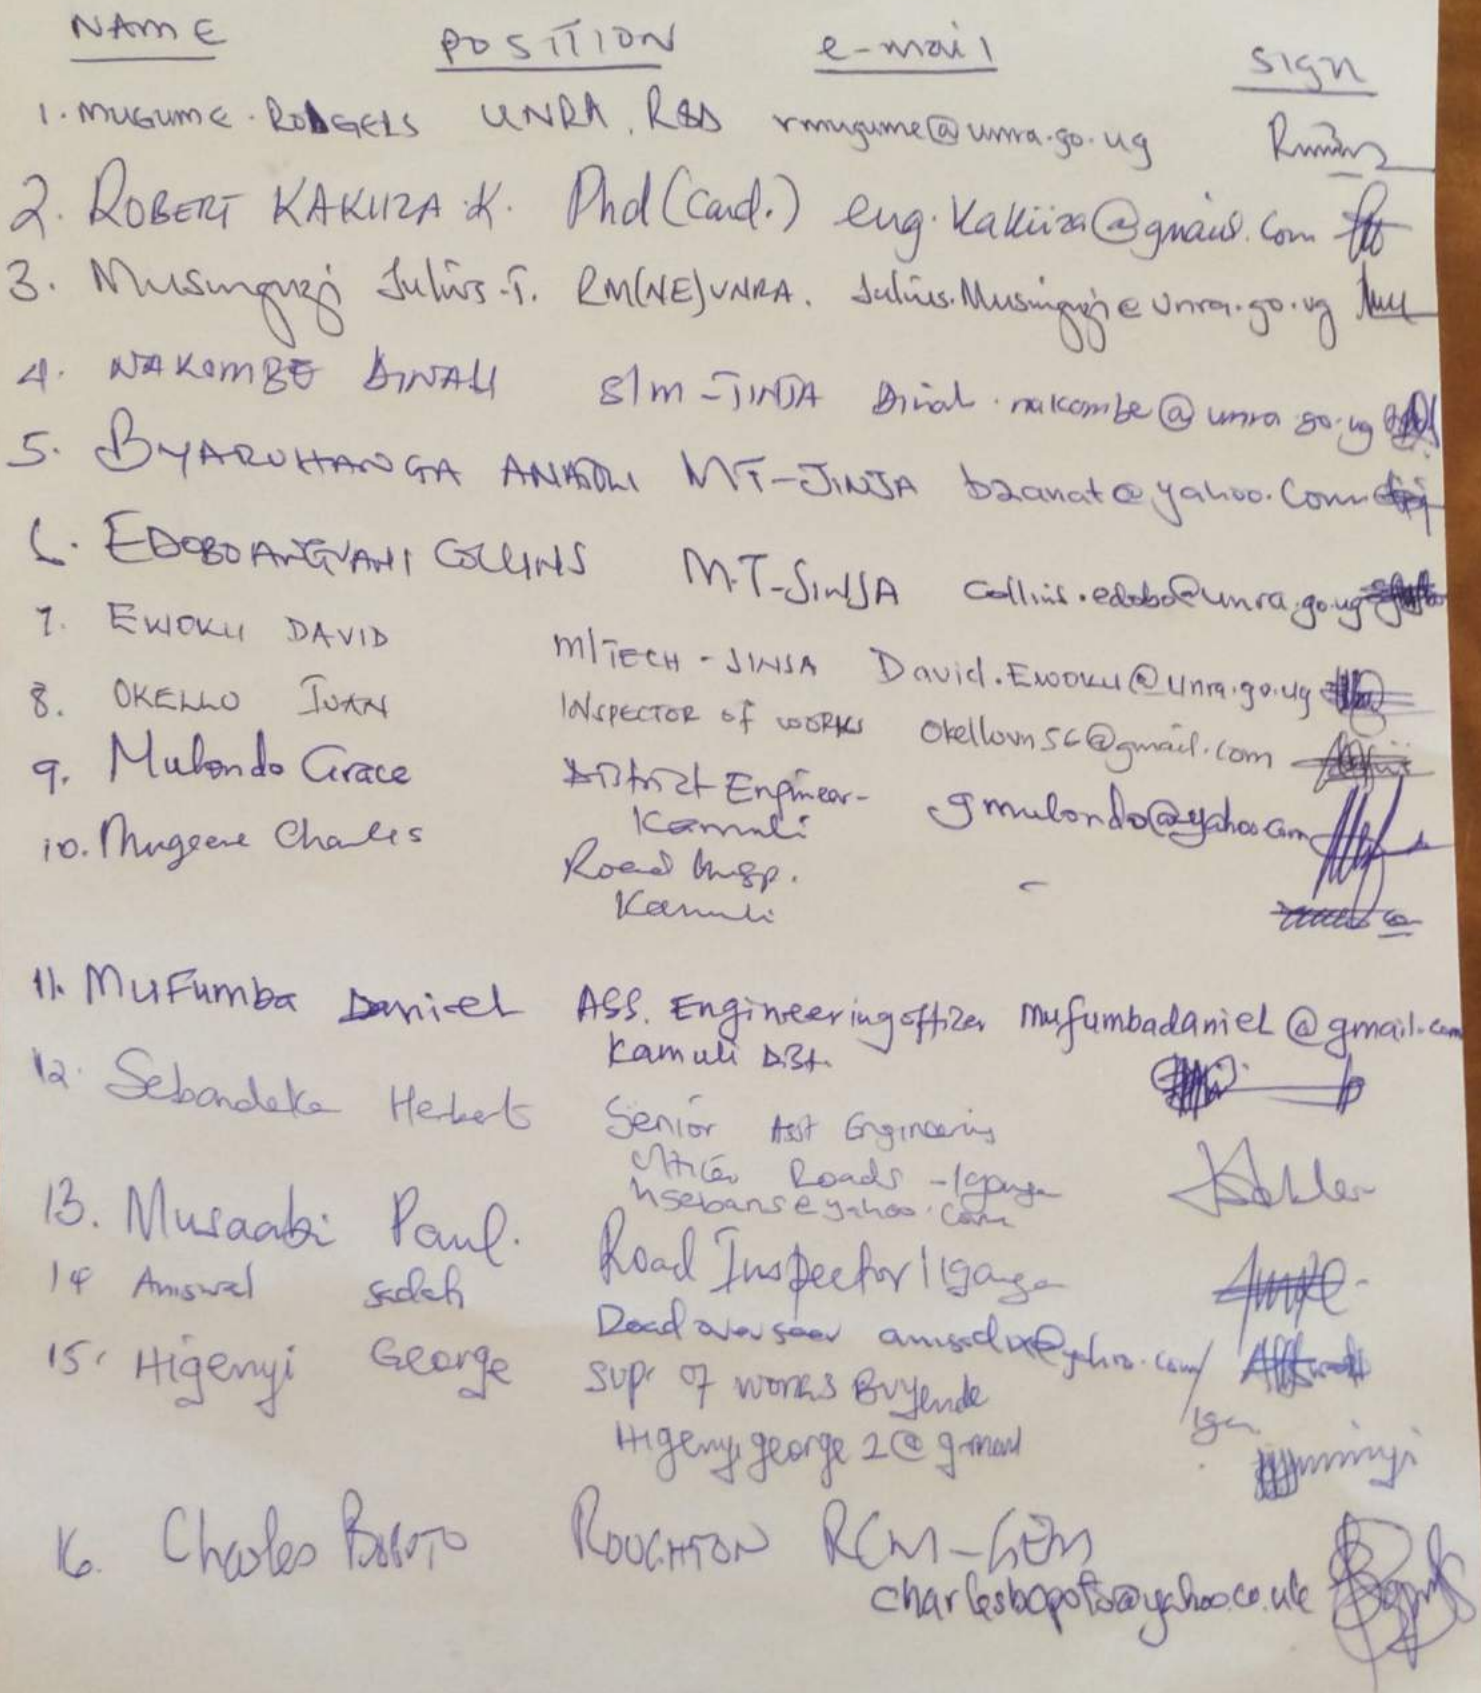 NAME POSITION e-mail sign
1. MUGUME RODGERS UNRA, R&D rmugume@unra.go.ug
2. ROBERT KAKIIZA K. Phd (Cand.) eng.kakiiza@gmail.com
3. Musinguzi Julius T. RM(NE)UNRA. Julius.Musinguzi@unra.go.ug
4. NAKOMBE DINAH S/M-JINJA Dinah.nakombe@unra.go.ug
5. BYARUHANGA ANATOLI MT-JINJA b2anat@yahoo.com
6. EDOBO ANGVANI COLLINS M.T-JINJA Collins.edobo@unra.go.ug
7. EWOKU DAVID M/TECH - JINJA David.Ewoku@unra.go.ug
8. OKELLO IVAN INSPECTOR OF WORKS Okellovn56@gmail.com
9. Mulondo Grace District Engineer- gmulondo@yahoo.com
Kamuli
10. Mugeere Charles Road Insp. -
Kamuli
11. MuFumba Daniel ASS. Engineering officer mufumbadaniel@gmail.com
Kamuli Dist.
12. Sebandeke Herbert Senior Asst Engineering
Officer Roads - Iganga
hsebans@yahoo.com
13. Musaabi Paul. Road Inspector Iganga
14 sadah Road overseer
15. Higenyi George Sup. of works Buyende
Iga
Higenyigeorge2@gmail
16. Charles Bopoto ROUGHTON RCM-GEM
charlesbopoto@yahoo.co.uk